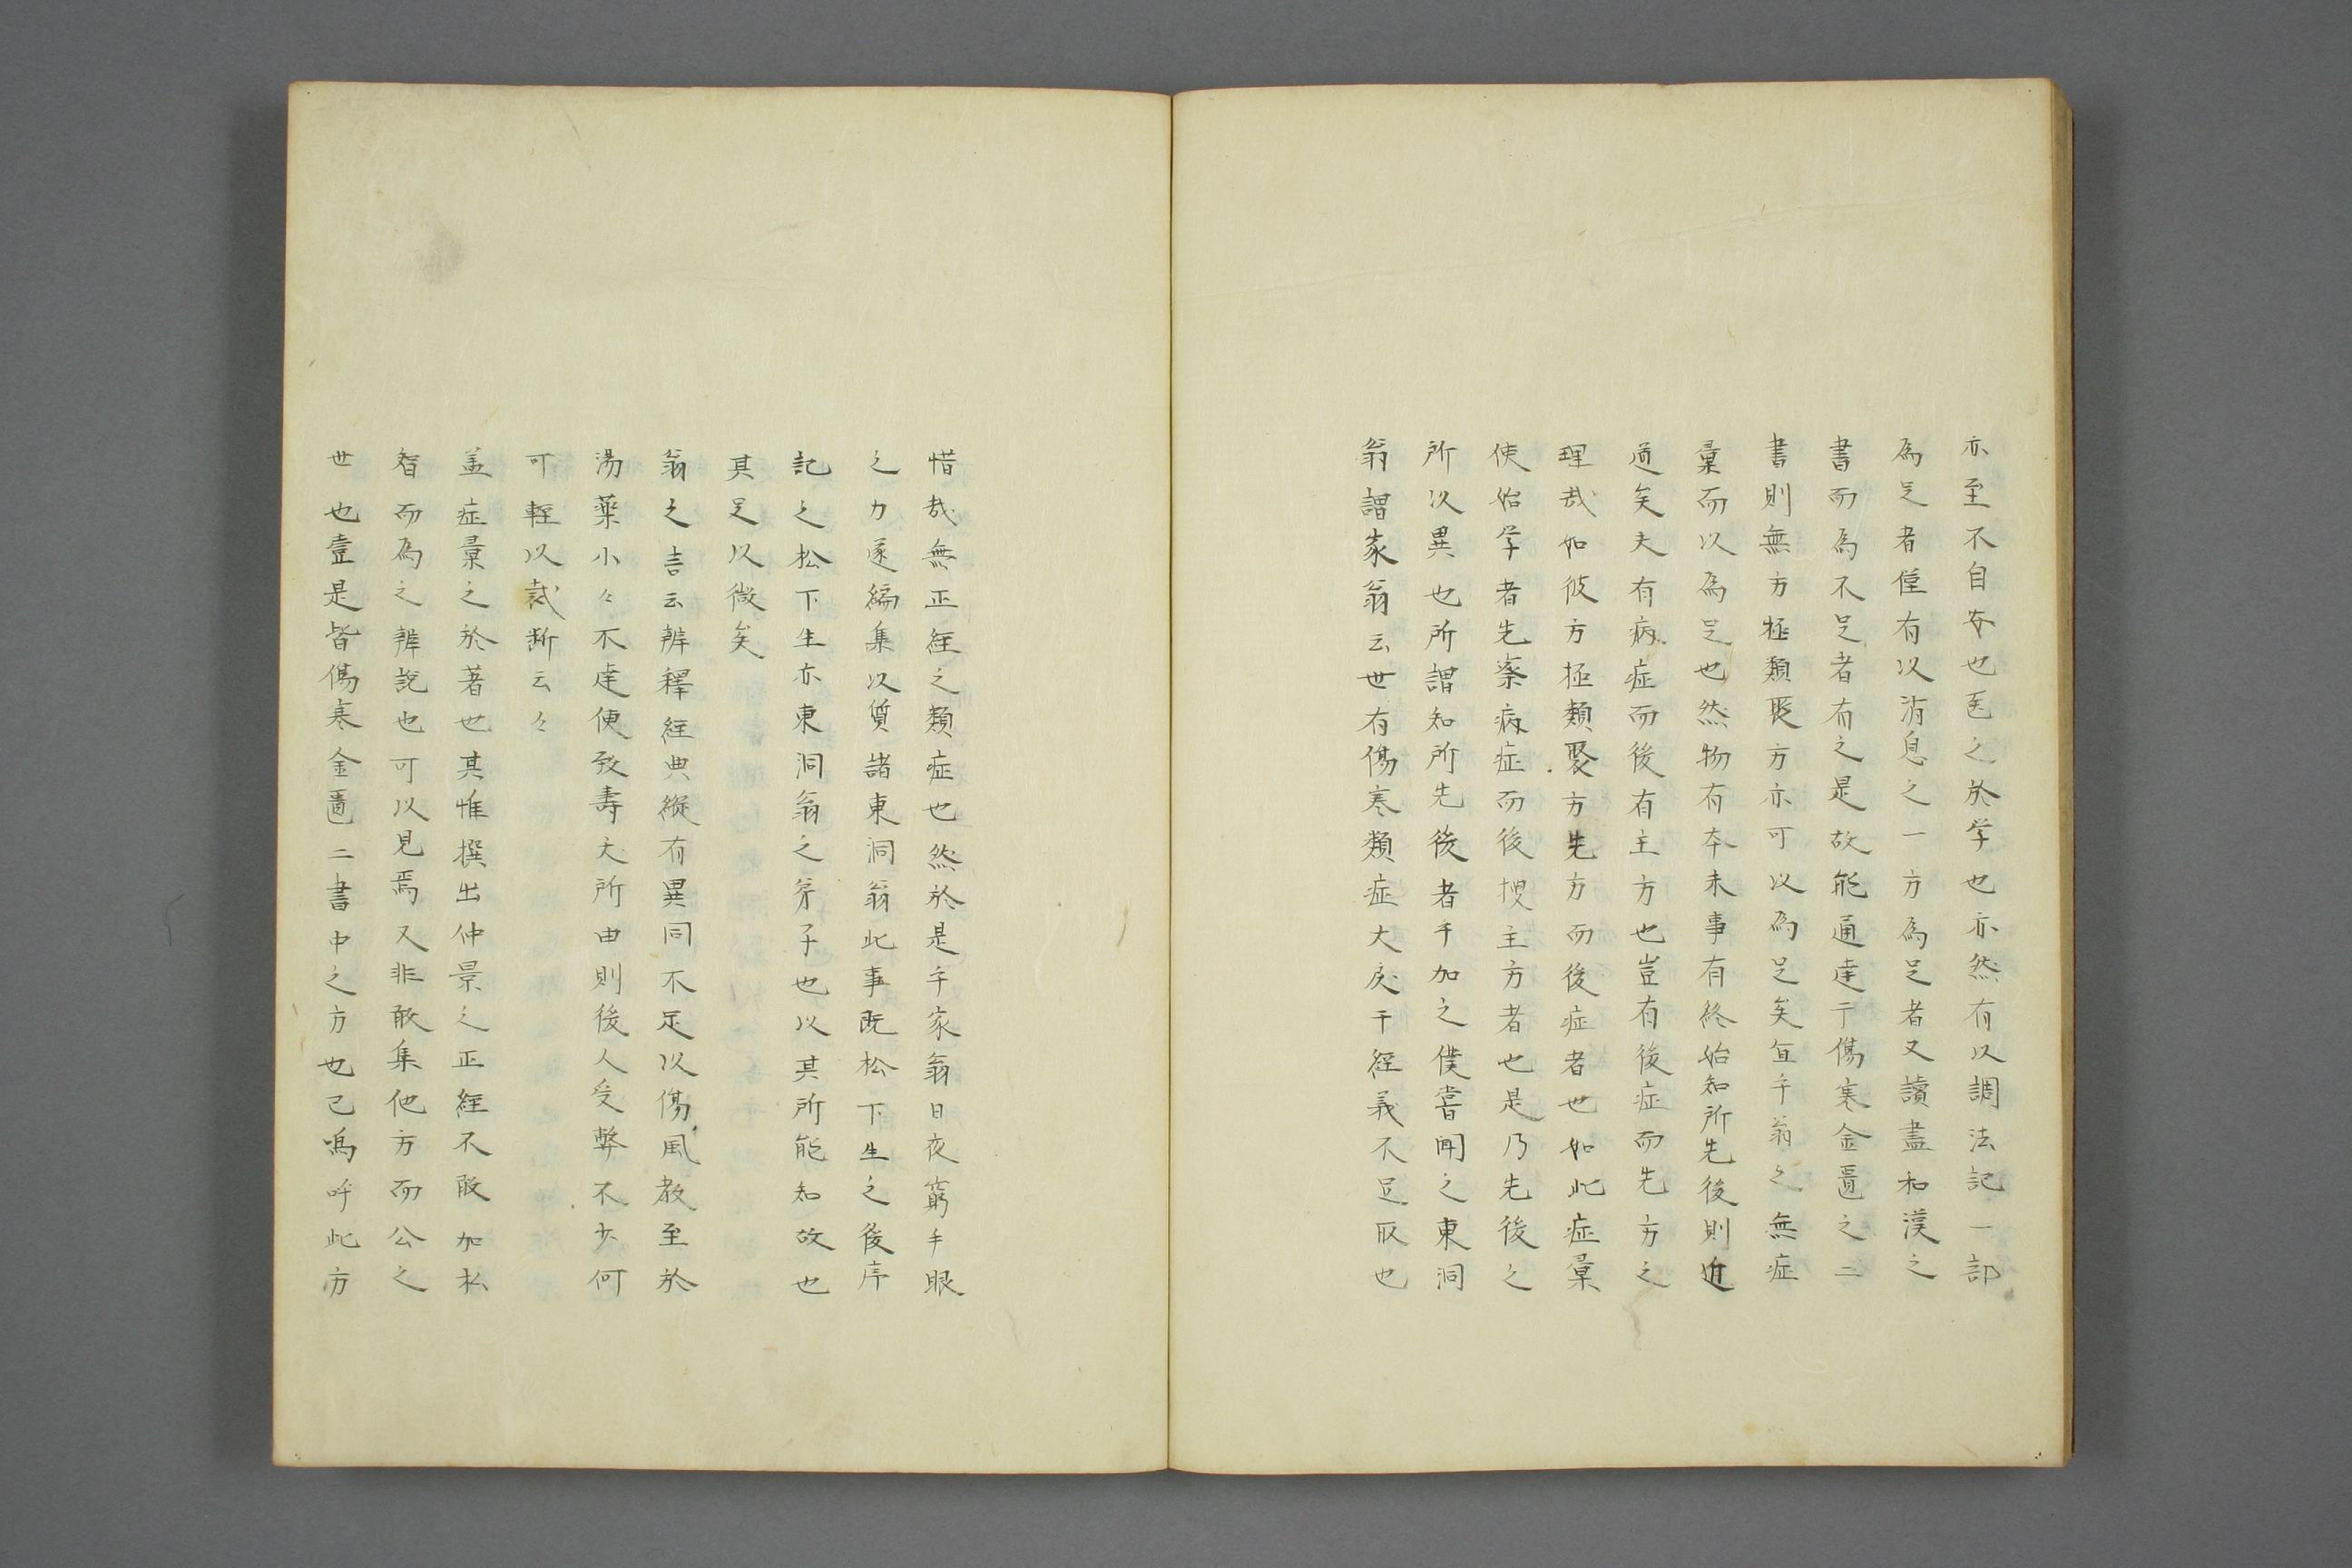 亦至不自安也医之於学也亦然有以調法記一部
為足者僅有以消息之一方為足者又讀盡和漢之
書而為不足者有之是故能通達于傷寒金匱之二
書則無方極類聚方亦可以為足矣宜乎翁之無症
彙而以為足也然物有本末事有終始知所先後則近
道矣夫有病症而後有主方也豈有後症而先方之
理哉如彼方極類聚方先方而後症者也如此症彙
使始学者先察病症而後捜主方者也是乃先後之
所以異也所謂知所先後者乎加之僕嘗聞之東洞
翁謂家翁云世有傷寒類症大戾于經義不足取也
惜哉無正經之類症也然於是乎家翁日夜窮手眼
之力遂編集以質諸東洞翁此事既松下生之後序
記之松下生亦東洞翁之弟子也以其所能知故也
其足以徴矣
翁之言云辨釋經典縦有異同不足以傷風教至於
湯藥小々不達便致壽夭所由則後人受弊不少何
可輕以裁断云々
盖症彙之於著也其惟撰出仲景之正經不敢加私
智而為之辨説也可以見焉又非敢集他方而公之
世也壹是皆傷寒金匱二書中之方也已嗚呼此方